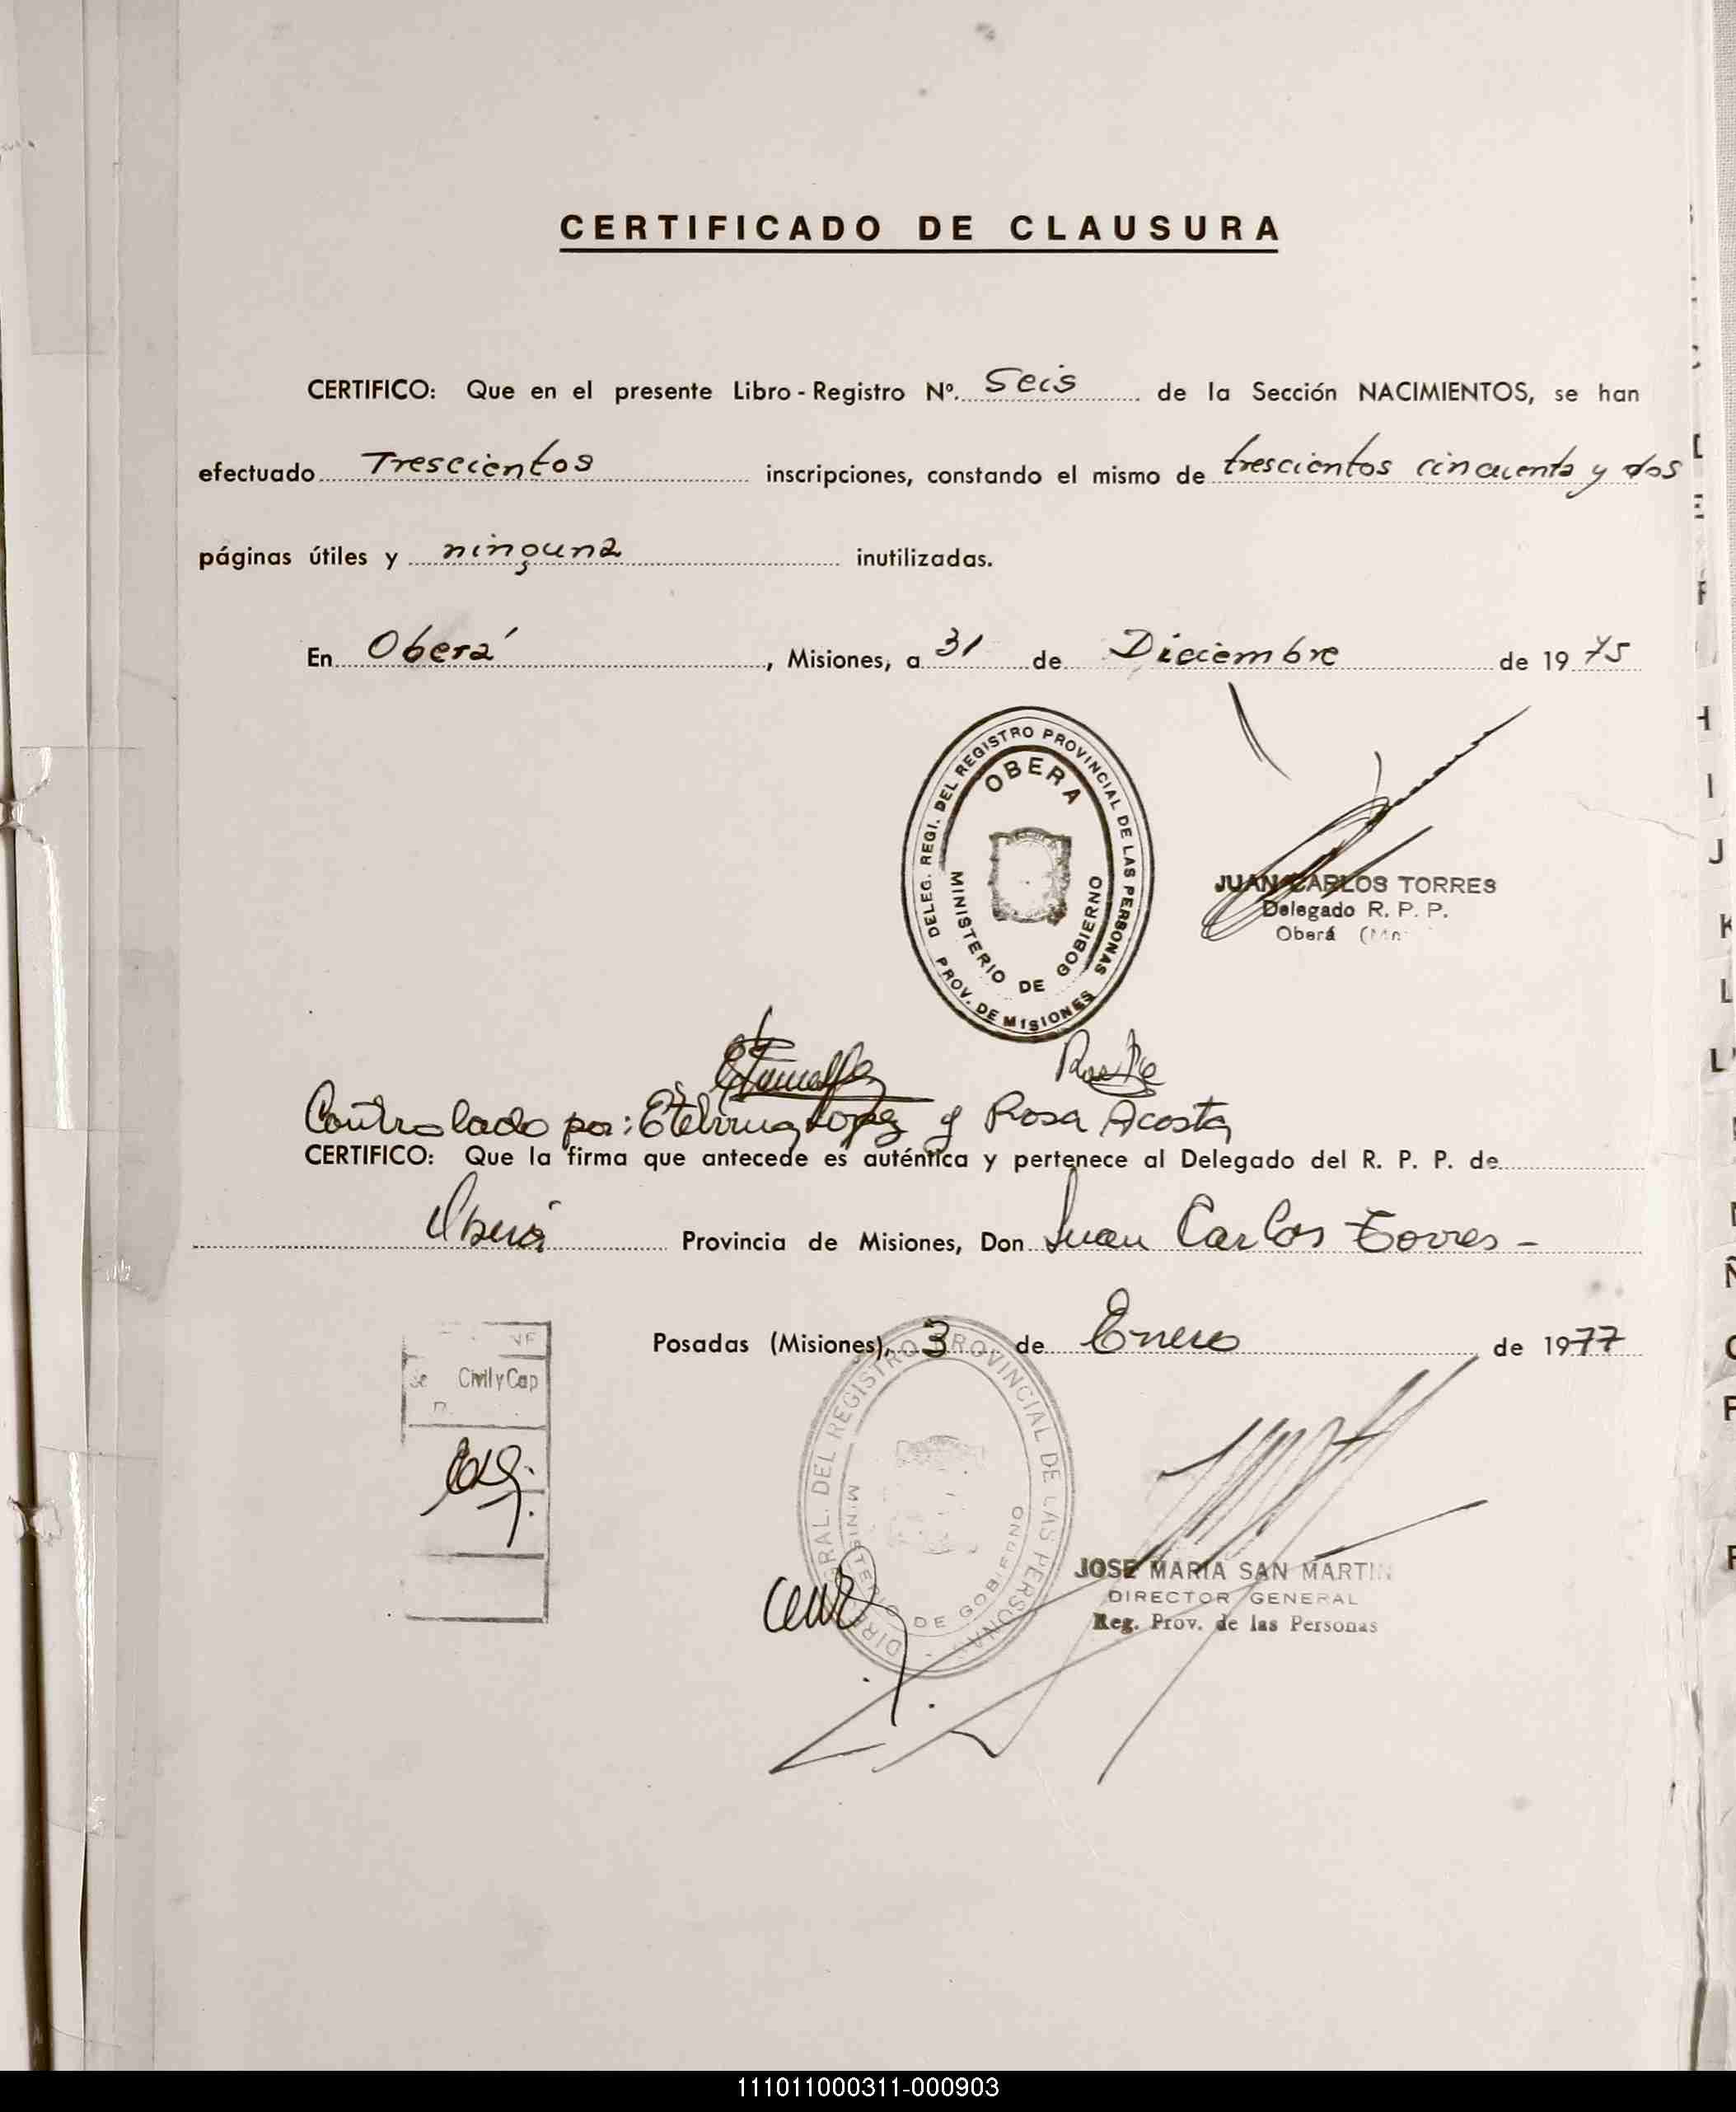 CERTIFICADO DE CLAUSURA
CERTIFICO: Que en el presente Libro - Registro Nº. Seis de la Sección NACIMIENTOS, se han
efectuado Trescientos inscripciones, constando el mismo de trescientos cincuenta y dos
páginas útiles y ninguna inutilizadas.
En Oberá, Misiones, a 31 de Diciembre de 1975
DELEG. REGI. DEL REGISTRO PROVINCIAL DE LAS PERSONAS
PROV. DE MISIONES
OBERA
MINISTERIO DE GOBIERNO
JUAN CARLOS TORRES
Delegado R. P. P.
Oberá
Controlado por: Etelvina Lopez y Rosa Acosta
CERTIFICO: Que la firma que antecede es auténtica y pertenece al Delegado del R. P. P. de
Oberá Provincia de Misiones, Don Juan Carlos Torres -
Posadas (Misiones), 3 de Enero de 1977
Civil y Cap
DEL REGISTRO PROVINCIAL DE LAS PERSONAS
MINISTERIO DE GOBIERNO
JOSE MARIA SAN MARTIN
DIRECTOR GENERAL
Reg. Prov. de las Personas
111011000311-000903